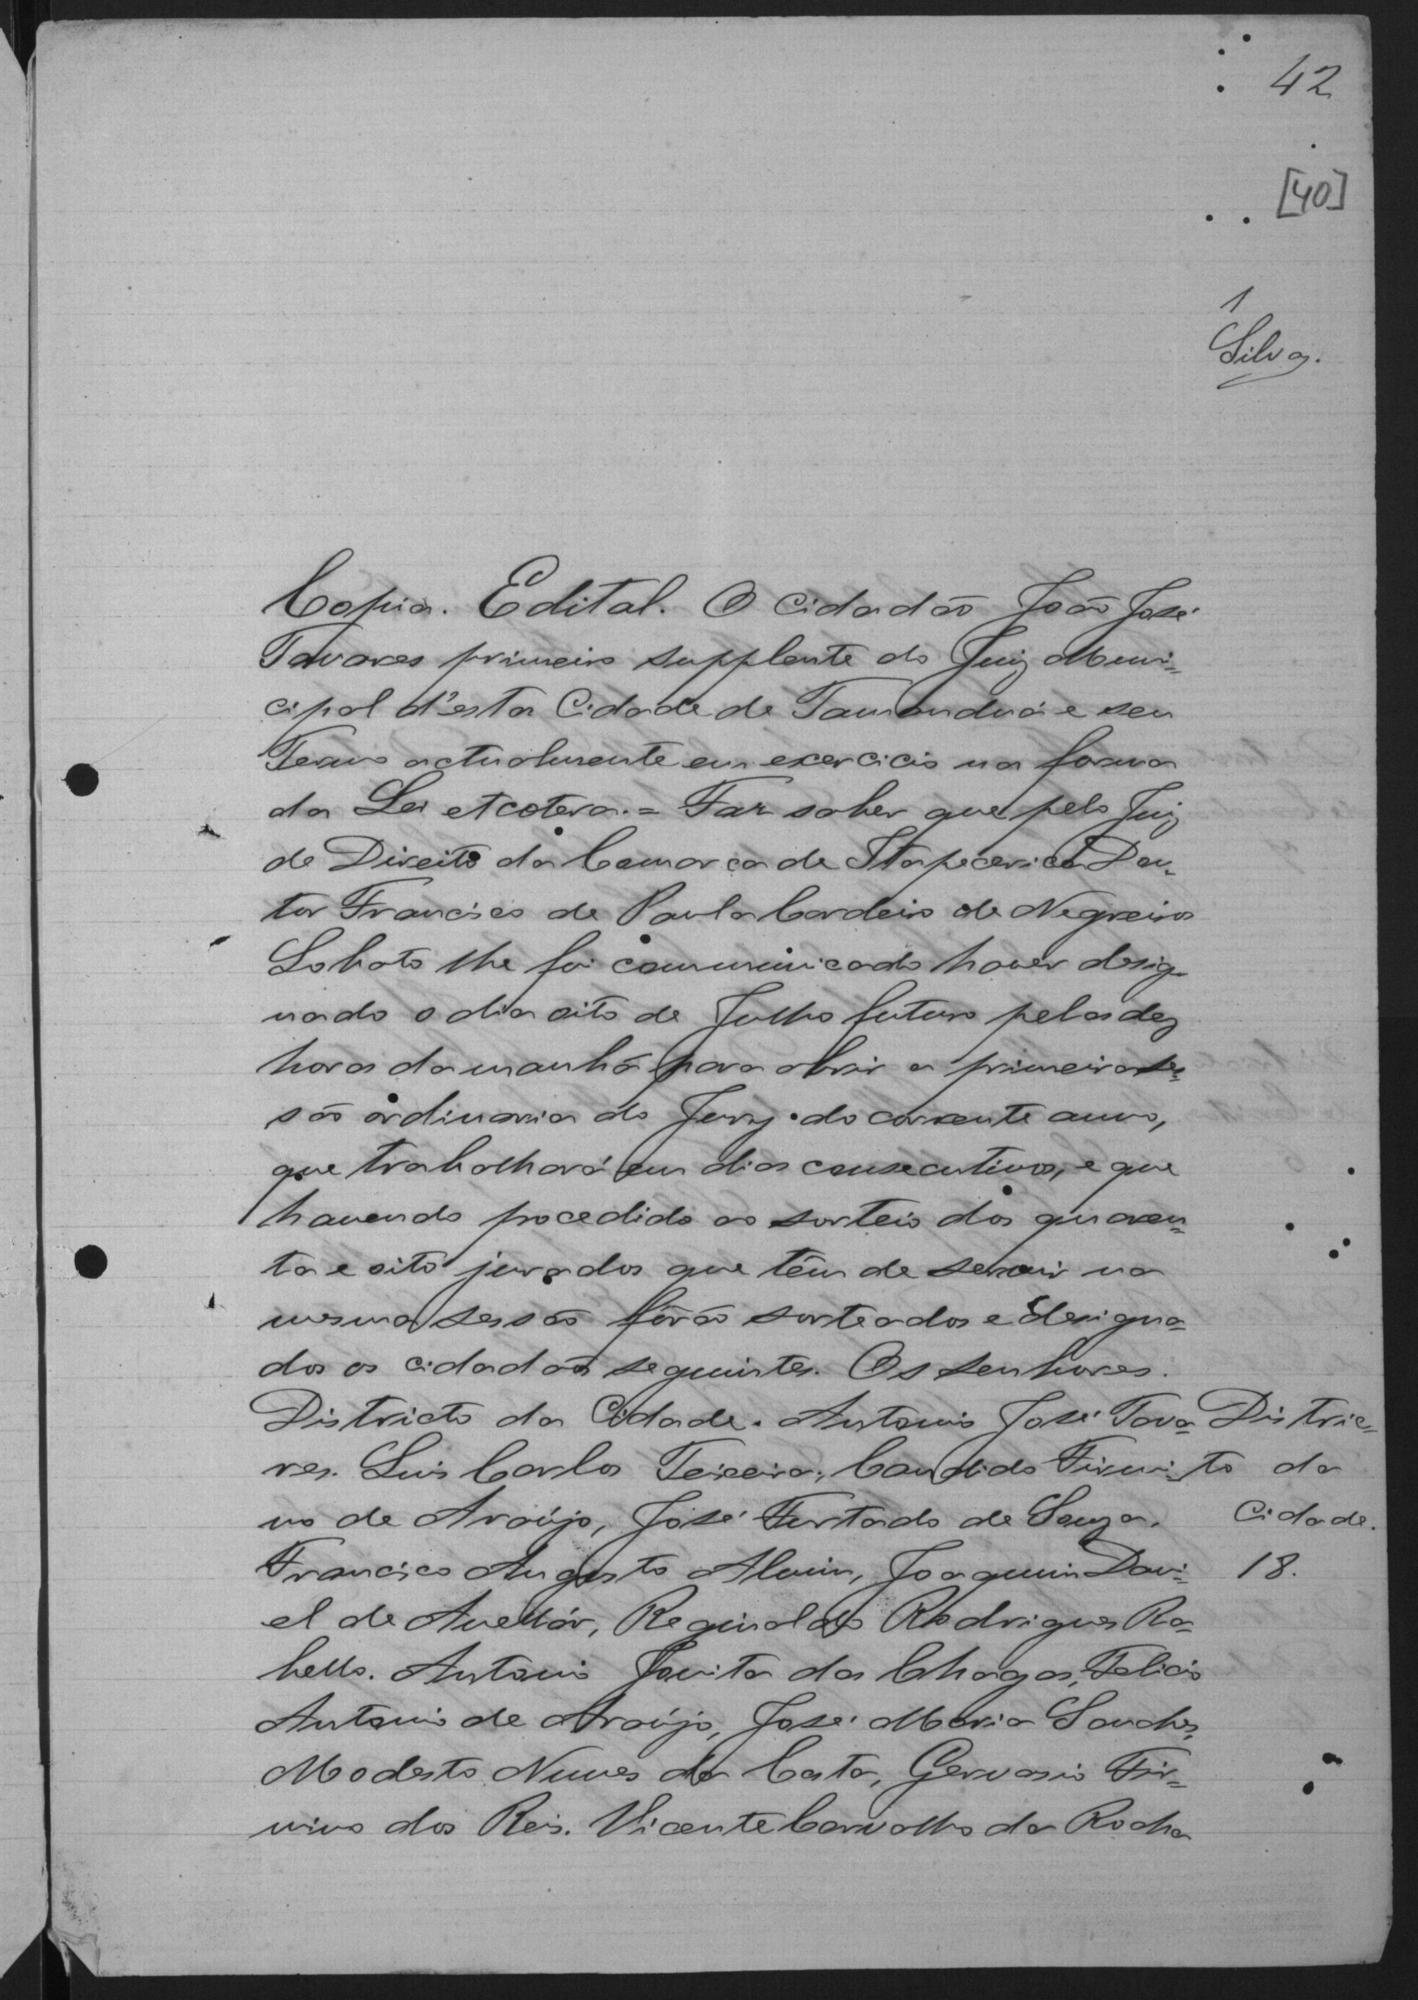 42
[40]
1
Silva.
Copia. Edital. O Cidadão João José
Tavares primeiro supplente do Juiz Muni=
cipal d'esta Cidade de Tamanduá e seu
Termo actualmente em exercicio na forma
da Lei etcotera. = Faz saber que pelo Juiz
de Direito da Comarca de Itapecerica Dou=
tor Francisco de Paula Cordeiro de Negreiros
Lobato lhe foi communicado haver desig=
nado o dia oito de Julho futuro pelas dez
horas da manhã para abrir a primeira ses=
são ordinaria do Jury do corrente anno,
que trabalhará em dias consecutivos, e que
havendo procedido ao sorteio dos quaren=
ta e oito jurados que têm de servir na
mesma sessão fôrão sorteados e designa=
dos os cidadãos seguintes. Os senhores.
Districto da Cidade. Antonio José Tava=
res. Luis Carlos Teixeira, Candido Firmi=
no de Araújo, José Furtado de Souza.
Francisco Augusto Alvim, Joaquim Dani=
el de Avellár, Reginaldo Rodrigues Ra=
bello. Antonio Jovita das Chagas, Felicio
Antonio de Araújo, José Maria Sanches,
Modesto Nunes da Costa, Gervasio Fir=
mino dos Reis. Vicente Carvalho da Rocha
Distric=
to da
Cidade.
18.